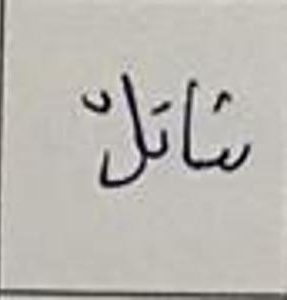 سَائَلّ